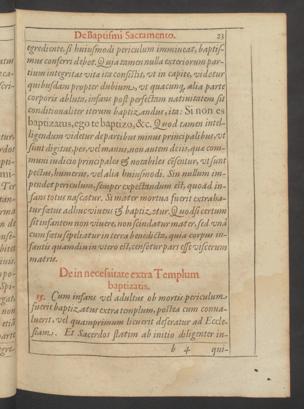 De Baptismi Sacramento. 23
egrediente, si huiusmodi periculum immineat, baptis-
mus conferri debet. Quia tamen nulla exteriorum par-
tium integritas vita ita consistit, vt in capite, videtur
quibusdam propter dubium, vt quacunq, alia parte
corporis abluta, infans post perfectam natiuitatem sit
conditionaliter iterum baptizandus, ita: Si non es
baptizatus, ego te baptizo, &c. Quod tamen intel-
ligendum videtur de partibus minus principalibus, vt
sunt digiti, pes, vel manus, non autem de iis, quæ com-
muni iudicio principales & notabiles censentur, vt sunt
pectus, humerus, vel alia huiusmodi. Sin nullum im-
pendet periculum, semper expectandum est, quoad in-
fans totus nascatur. Si mater mortua fuerit extraha-
tur fœtus adhuc viuens & baptizetur. Quod si certum
sit infantem non viuere, non scindatur mater, sed vnà
cum fœtu sepeliatur in terra benedicta, quia corpus in-
fantis quamdiu in vtero est, censetur pars esse viscerum
matris.
De in necessitate extra Templum
baptizatis.
15. Cum infans vel adultus ob mortis periculum
fuerit baptizatus extra templum, postea cum conua-
luerit, vel quamprimum licuerit deferatur ad Eccle-
siam. Et Sacerdos statim ab initio diligenter in-
b 4 qui-